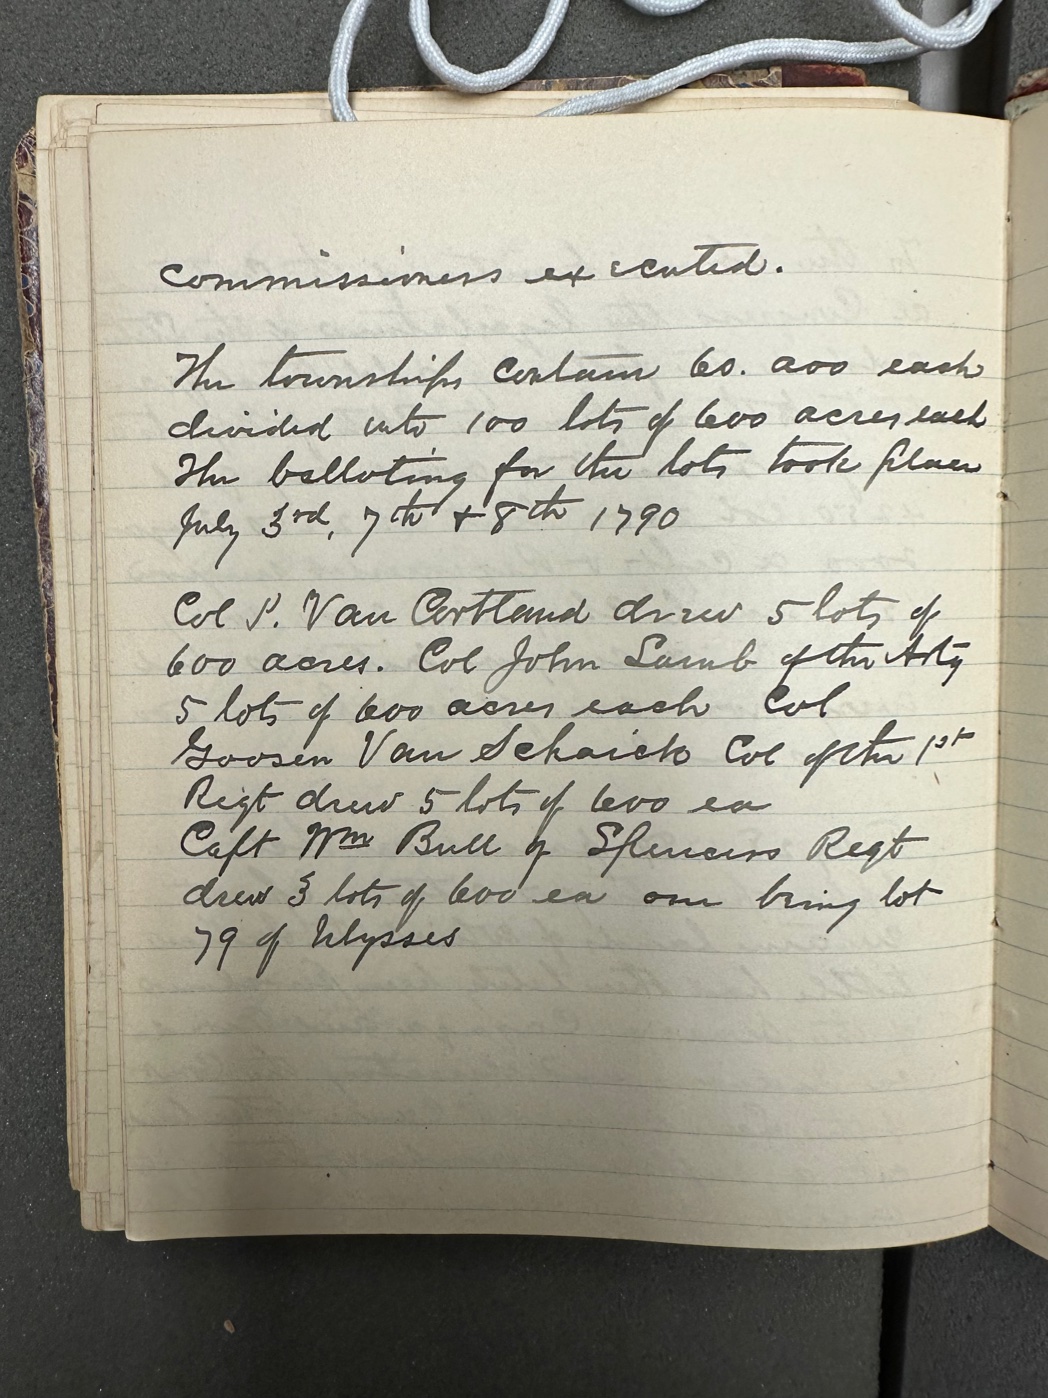 commissioners executed.
The townships contain 60. 000 each
divided into 100 lots of 600 acres each
The balloting for the lots took place
July 3rd, 7th + 8th 1790
Col P. Van Cortland drew 5 lots of
600 acres. Col John Lamb of the Arty
5 lots of 600 acres each Col
Goosen Van Schaick Col of the 1st
Regt drew 5 lots of 600 ea
Capt Wm Bull of Spencers Regt
drew 3 lots of 600 ea one being lot
79 of Ulysses